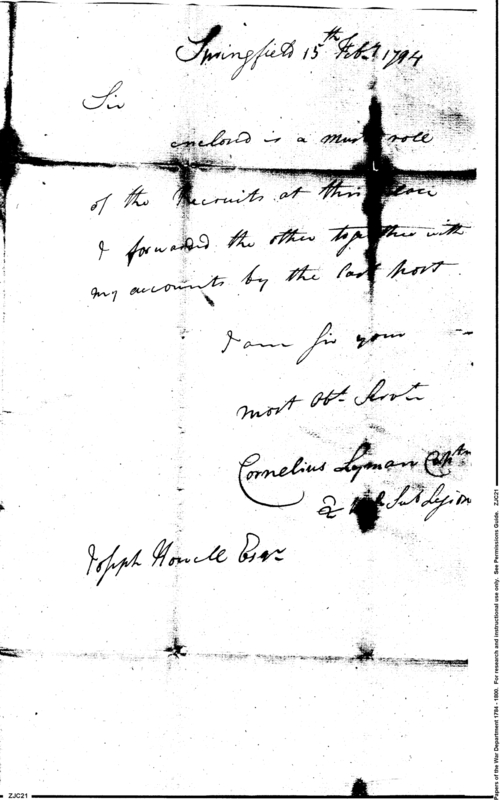 Springfield 15th Feby 1794
Sir
enclosed is a muster roll
of the Recruits at this place
I forwarded the other together with
my accounts by the last post
I am Sir your
most Obt Servt
Cornelius Lyman Captn
2 Sub Legion
Joseph Howell Esqr
Papers of the War Department 1784 - 1800. For research and instructional use only. See Permissions Guide. ZJC21
ZJC21